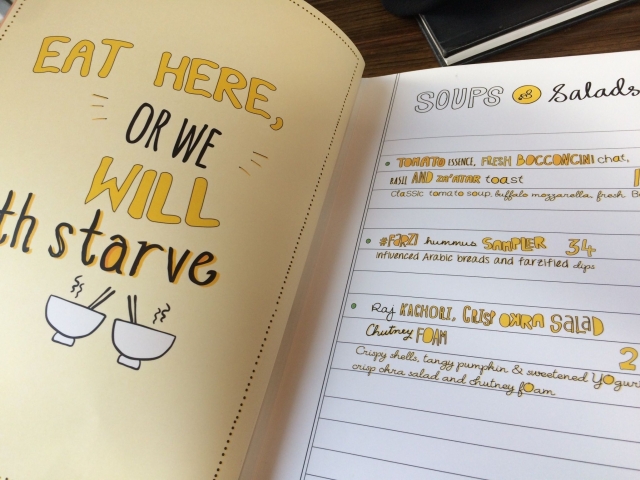 EAT HERE,
OR WE
WILL
th starve
SOUPS & Salads
TOMATTO ESSENCE, FRESH BOCCONCINI chat,
BASIL AND ZA'ATAR toast
Classic tomato soup, buffalo mozzarella, fresh B
#FARZI hummus SAMPLER 34
influenced Arabic breads and farzified dips
Raj KACHORI, CRISP OKRA SALAD
Chutney FOAM
2
Crispy shells, tangy pumpkin & sweetened Yogur
crisp okra salad and chutney foam